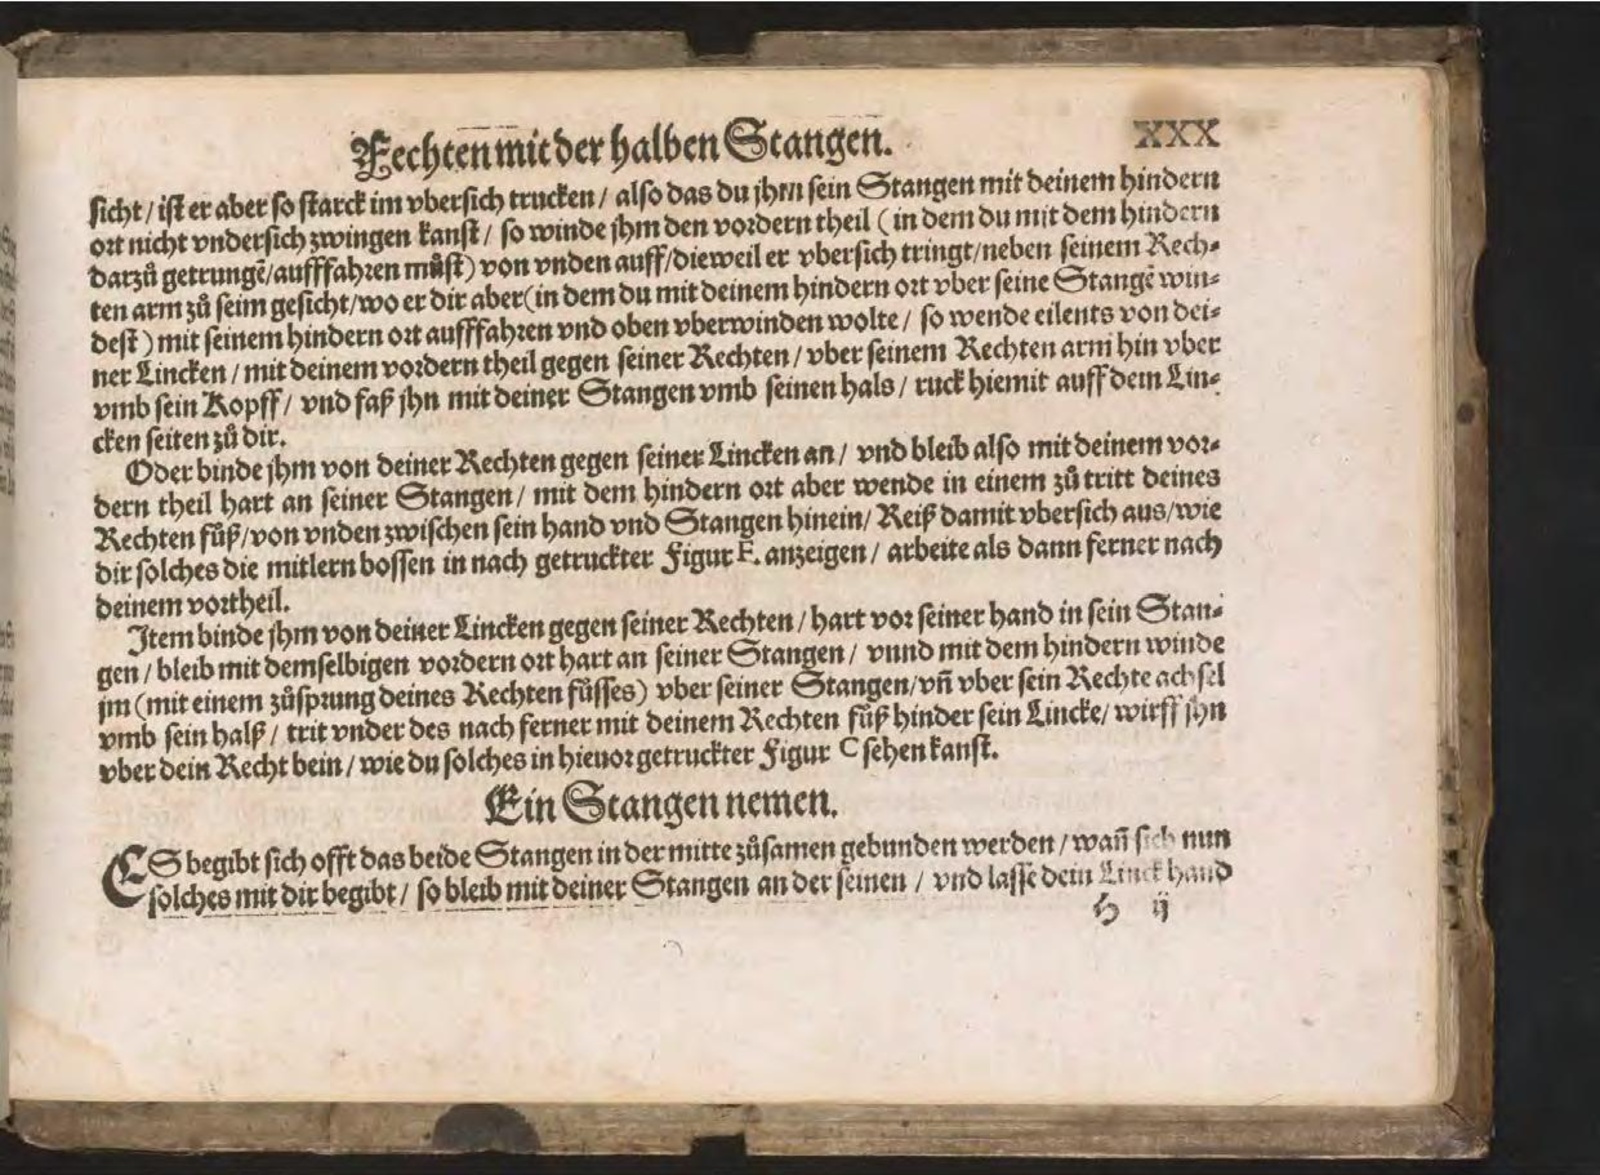 Fechten mit der halben Stangen. XXX
sicht / ist er aber so starck im vbersich trucken / also das du jhm sein Stangen mit deinem hindern
ort nicht vndersich zwingen kanst / so winde jhm den vordern theil ( in dem du mit dem hindern
darzů getrungē/aufffahren můst) von vnden auff/dieweil er vbersich tringt/neben seinem Rech⸗
ten arm zů seim gesicht/wo er dir aber(in dem du mit deinem hindern ort vber seine Stangē win⸗
dest ) mit seinem hindern ort aufffahren vnd oben vberwinden wolte / so wende eilents von dei⸗
ner Lincken / mit deinem vordern theil gegen seiner Rechten / vber seinem Rechten arm hin vber
vmb sein Kopff / vnd faß jhn mit deiner Stangen vmb seinen hals / ruck hiemit auff dem Lin⸗
cken seiten zů dir.
Oder binde jhm von deiner Rechten gegen seiner Lincken an / vnd bleib also mit deinem vor⸗
dern theil hart an seiner Stangen / mit dem hindern ort aber wende in einem zů tritt deines
Rechten fůß/von vnden zwischen sein hand vnd Stangen hinein/ Reiß damit vbersich aus/wie
dir solches die mitlern bossen in nach getruckter Figur F. anzeigen / arbeite als dann ferner nach
deinem vortheil.
Item binde jhm von deiner Lincken gegen seiner Rechten / hart vor seiner hand in sein Stan⸗
gen / bleib mit demselbigen vordern ort hart an seiner Stangen / vnnd mit dem hindern winde
jm (mit einem zůsprung deines Rechten fůsses) vber seiner Stangen/vn̄ vber sein Rechte achsel
vmb sein halß / trit vnder des nach ferner mit deinem Rechten fůß hinder sein Lincke/ wirff jhn
vber dein Recht bein / wie du solches in hieuor getruckter Figur C sehen kanst.
Ein Stangen nemen.
ES begibt sich offt das beide Stangen in der mitte zůsamen gebunden werden / wan̄ sich nun
solches mit dir begibt / so bleib mit deiner Stangen an der seinen / vnd lasse dein Linck hand
H ij